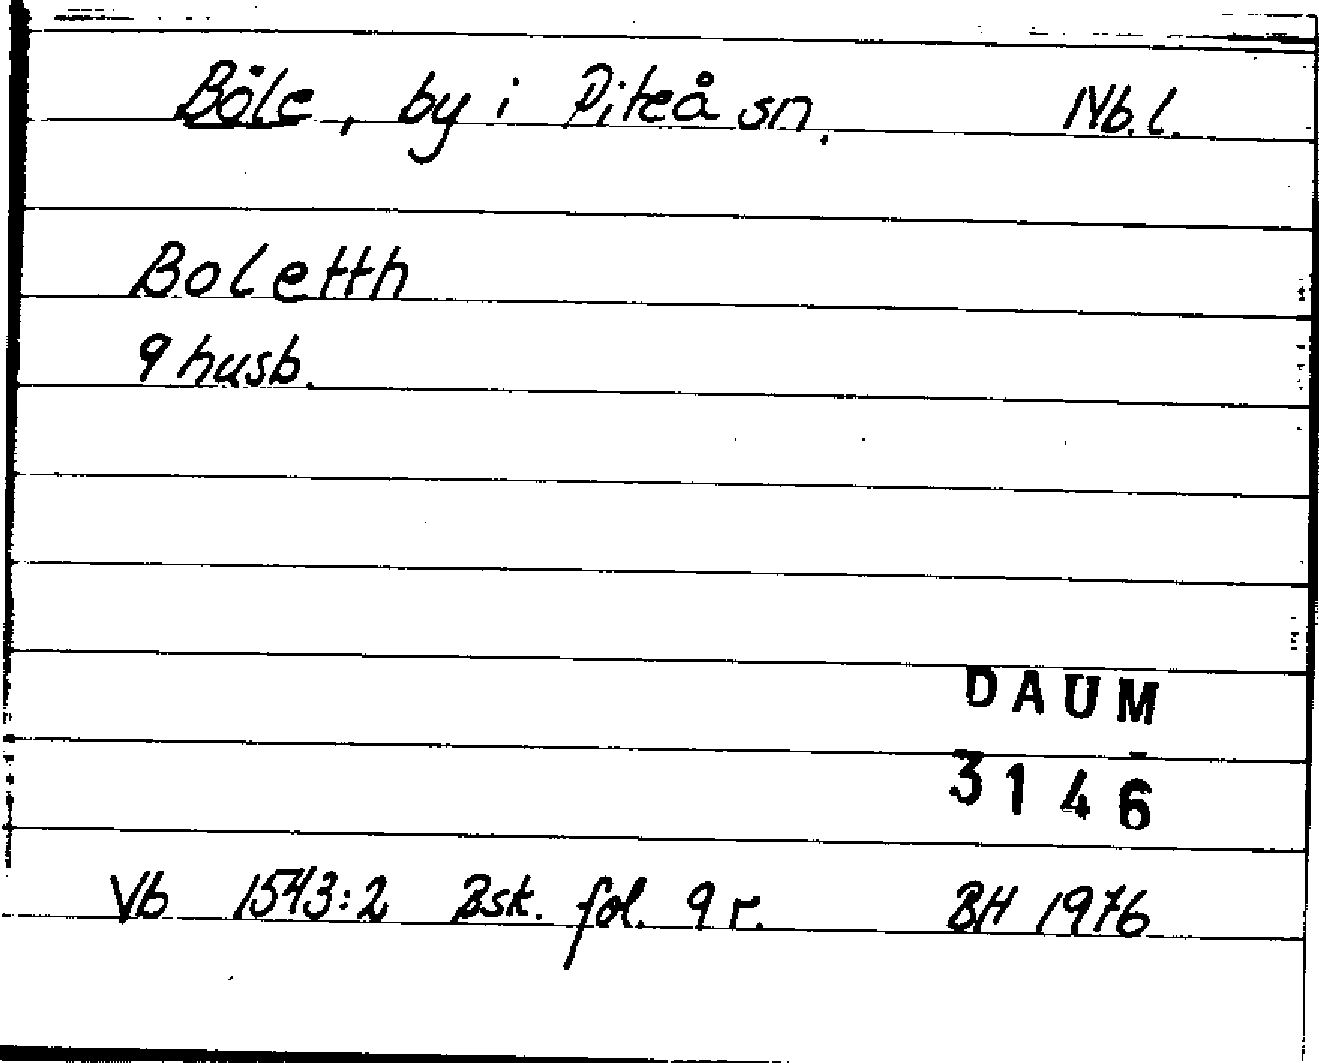 Böle, by i Piteå sn. Nb.l.
Boletth
9 husb.
DAUM
3146
Vb 1543:2 Bsk. fol. 9 r. BH 1976